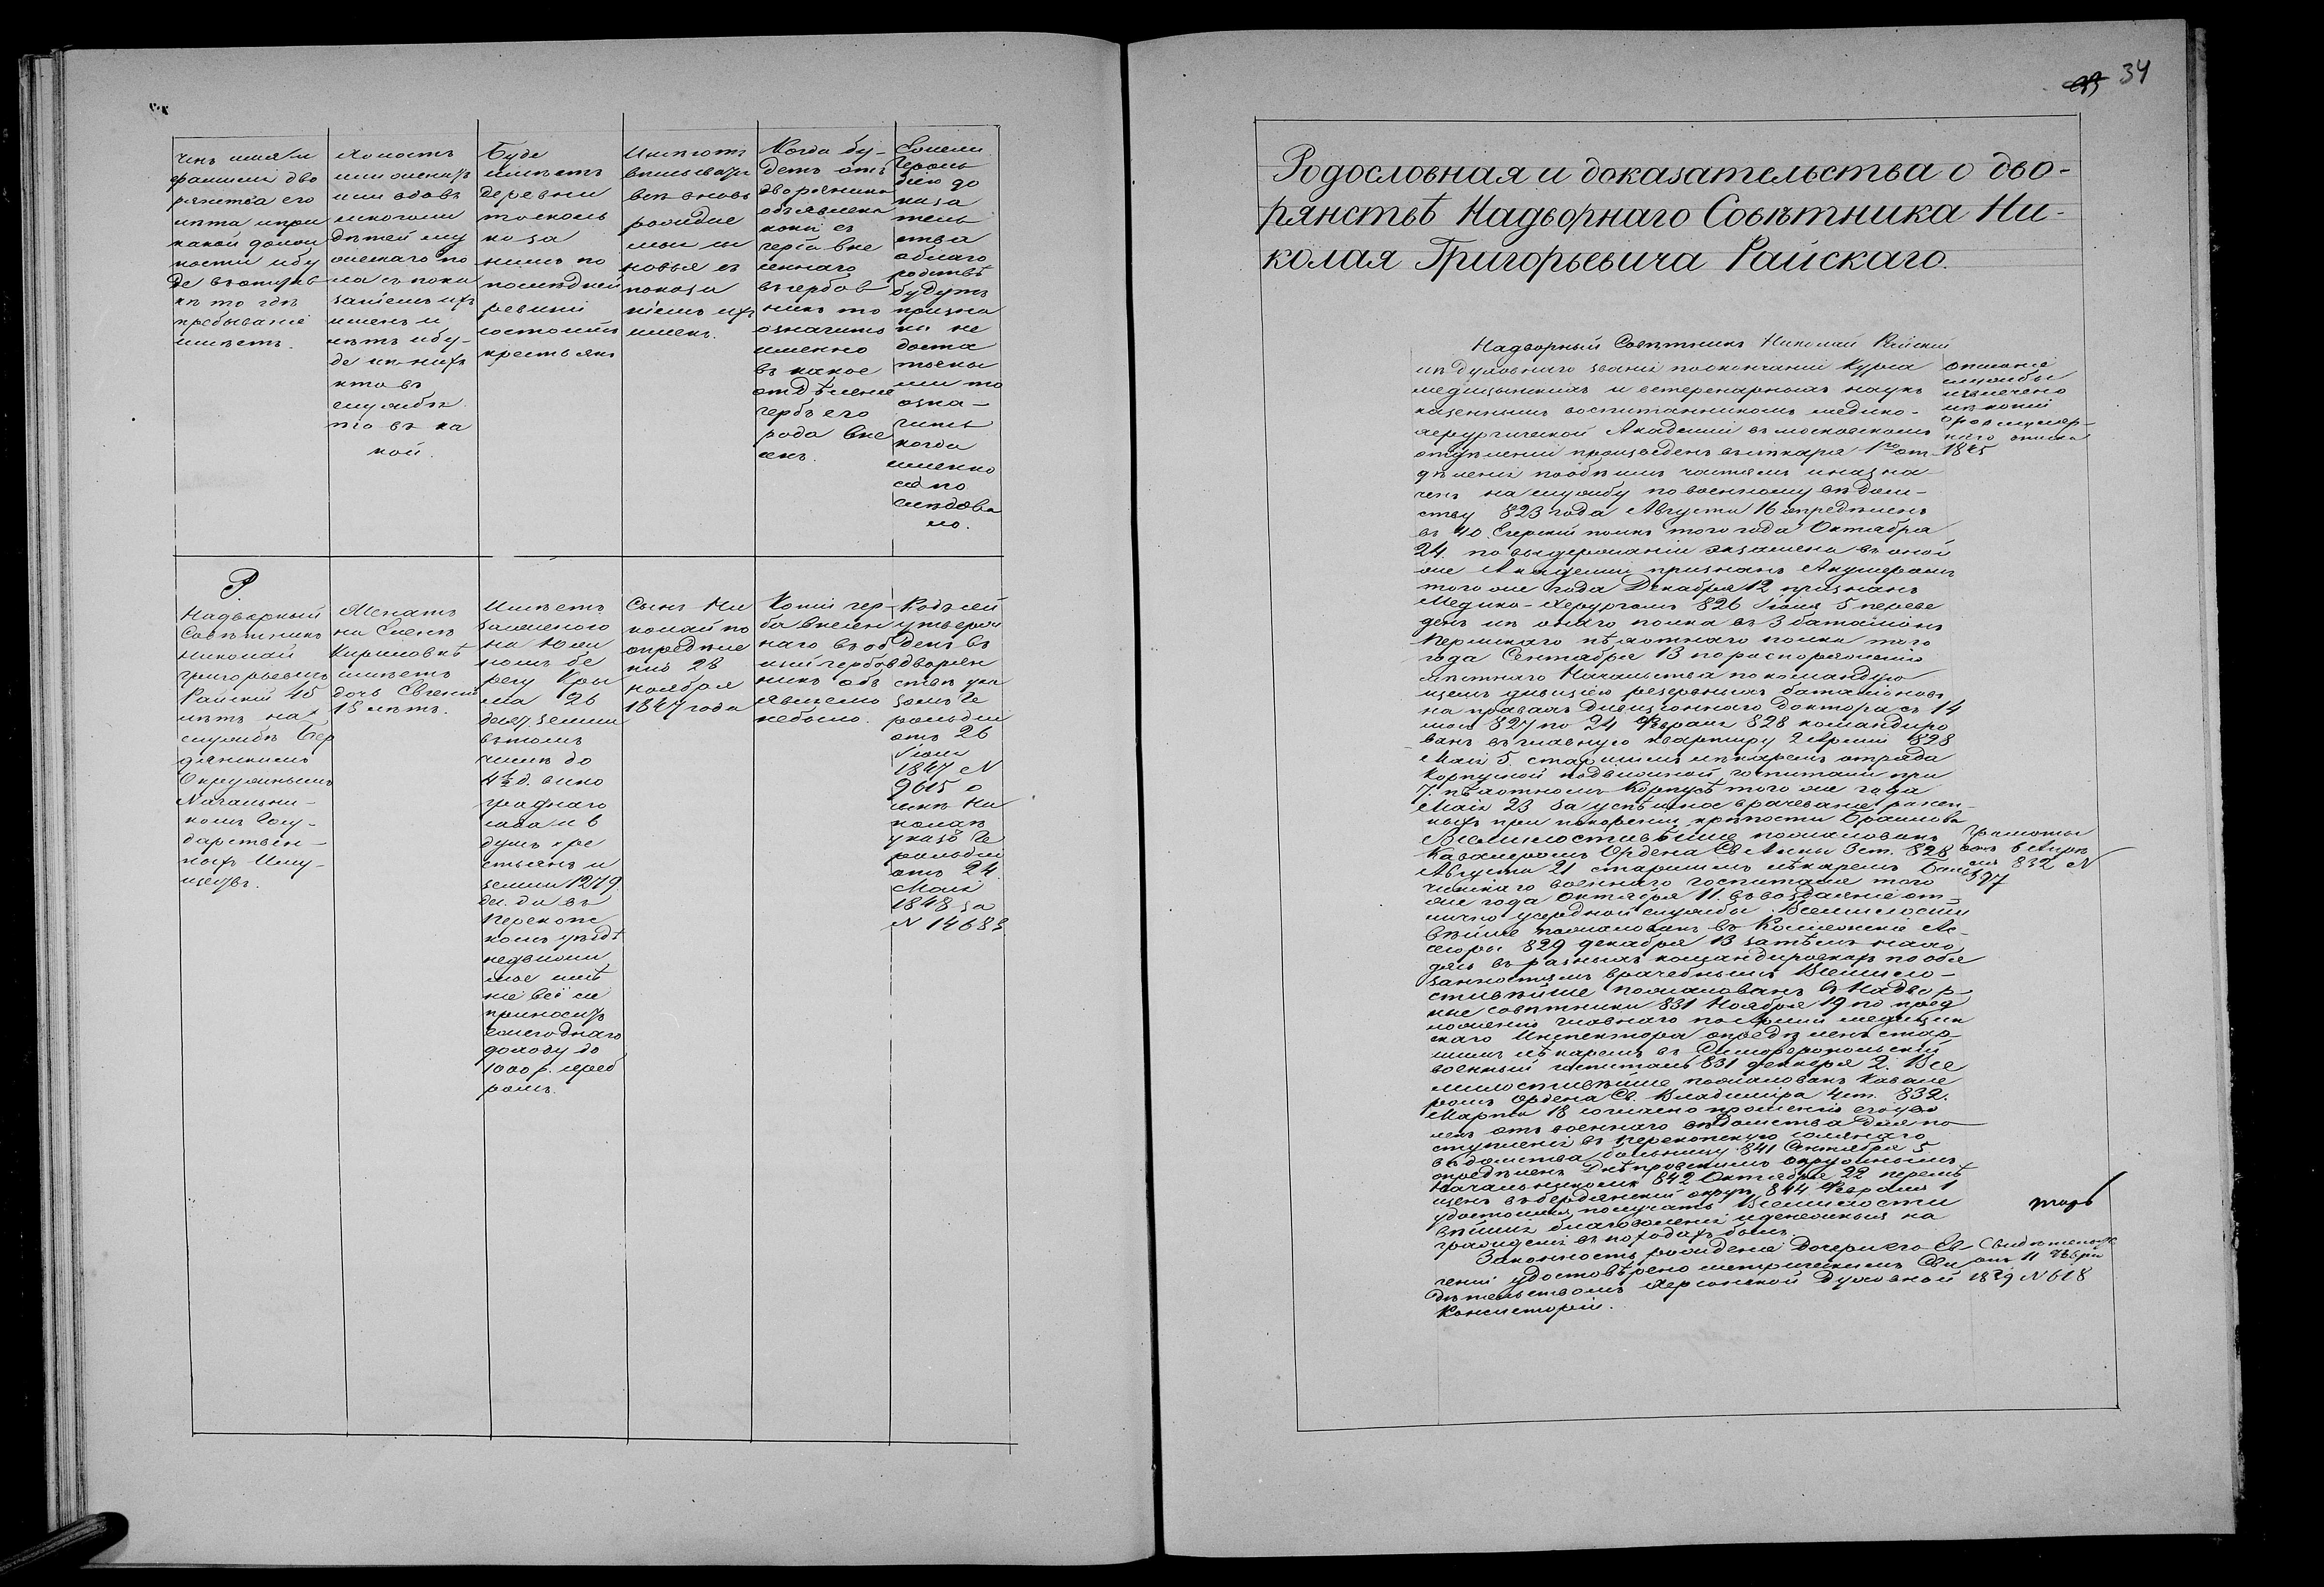 чинъ имя и
фамилія дво
рянства его
лѣта и при
какой долж
ности и бу
де въ отстав
кѣ то гдѣ
пребываніе
имѣетъ.
холостъ
или женатъ
или вдовъ
сколько
дѣтей му
жескаго по
ла съ пока
заніемъ ихъ
именъ и
лѣтъ и бу-
де изъ нихъ
кто въ
службѣ
то въ ка
кой.
Буде
имѣетъ
деревни
то сколь
ко за
нимъ по
последней
ревизіи
состоитъ
крестьянъ
вписывать
всѣ вновь
рожден
ные сы
новья съ
показа
ніемъ ихъ
именъ.
Когда бу-
детъ отъ
дворянина
объявлена
копія съ
герба вне
сеннаго
въ гербов
никъ то
означить
именно
въ какое
отдѣленіе
гербъ его
рода вне
сенъ.
Ежели
Героль
діею до
каза
тель
ства
будутъ
призна
ны не
доста
точны
ми то
озна-
чить
когда
именно
сіе по
слѣдова
ло.
Р.
Надворный
Совѣтникъ
Николай
Григорьевичъ
Райскій 45
лѣтъ на
службѣ Бер
дянскимъ
Окружнымъ
Начальни-
комъ Госу-
дарствен-
ныхъ Иму-
ществъ.
Женатъ
на Еленѣ
Кириловнѣ
имѣетъ
дочь Евгенію
18 лѣтъ.
Имѣетъ
на Юж
номъ бе
регу Кры
ма 26
десят. земли
въ томъ
числѣ до
4½ д. вино
граднаго
сада и 8
душъ кре
стьянъ и
земли 1279
дес. да въ
Перекопс
комъ уѣздѣ
недвижи
мое имѣ
ніе всё сіе
приноситъ
ежегоднаго
доходу до
1000 р. сереб
ромъ.
Сынъ Ни
колай по
опредѣле
нію 28
ноября
1847 года
Копіи гер
ба внесен
наго въ об
щій гербов
никъ объ
явлено
небыло.
Родъ сей
утверж
денъ въ
дворян
ствѣ ука
зомъ Ге
рольдіи
отъ 26
Іюня
1847 N
9615 о
сынѣ Ни
колаѣ
указъ Ге
рольдіи
отъ 24
Мая
1848 за
N 14683.
34
Родословная и доказательства о дво-
рянствѣ Надворнаго Совѣтника Ни-
колая Григорьевича Райскаго.
Надворный Совѣтникъ Николай Райскій
изъ духовнаго званія по окончаніи Курса
медицынскихъ и ветеренарныхъ наукъ
казеннымъ воспитанникомъ медико-
херургической Академіи въ московскомъ
отдѣленіи произведенъ въ лѣкаря 1го от-
дѣленія по обѣимъ частямъ и назна
ченъ на службу по военному вѣдом-
ству 823 года Августа 16 опредѣленъ
въ 40. Егерскій полкъ того года Октября
24. по выдержаніи экзамена въ оной
же Академіи признанъ Акушеромъ
того же года Декабря 12 признанъ
Медико-Херургомъ 826 Іюня 5 переве
денъ изъ онаго полка въ 3 баталіонъ
Пермскаго пѣхотнаго полка того
года Сентября 13 по распоряженію
мѣстнаго Начальства по командую
щимъ дивизіею резервныхъ баталіоновъ
на правахъ Дивизіоннаго Доктора съ 14
мая 827 по 24 Февраля 828 командиро
ванъ въ главную квартиру 2 Арміи 828
Мая 5. старшимъ лѣкаремъ отряда
Корпусной подвижной госпитали при
7. пѣхотномъ Корпусѣ того же года
Мая 23 за успѣшное врачеваніе ранен-
ныхъ при покореніи крѣпости Браилова
Всемилостивѣйше пожалованъ
Кавалеромъ Ордена Св. Анны 3 ст. 828
Августа 21 старшимъ лѣкаремъ
военнаго госпиталя того
же года Октября 11. въ воздаяніе от-
лично усердной службы Всемилости
вѣйше пожалованъ въ Коллежскіе Ас-
сесоры 829 декабря 13 затѣмъ нахо
дясь въ разныхъ командировкахъ по обя
занностямъ врачебнымъ Всемило-
стивѣйше пожалованъ въ Надвор
ные совѣтники 831 Ноября 19 по пред
ложенію главнаго по Арміи медицын
скаго Инспектора опредѣленъ стар-
шимъ лѣкаремъ въ Симферопольскій
военный госпиталь 831 декабря 2. Все
милостивѣйше пожалованъ Кавале
ромъ Ордена Св. Владиміра 4 ст. 832.
Марта 18 согласно прошенію его уво
ленъ отъ военнаго вѣдомства для по-
ступленія въ Перекопскую солянаго
вѣдомства больницу 841 Сентября 5
опредѣленъ Днѣпровскимъ окружнымъ
Начальникомъ 842 Октября 22 перемѣ
щенъ въ бердянскій округъ 844 Февраля 1
удостоился получать Всемилости
вѣйшія благоволенія и денежныя на
гражденія въ походахъ былъ.
Законность рожденія дочери его Ев-
геніи удостовѣрено метрическимъ Сви
дѣтельствомъ Херсонской Духовной
Консисторіи.
описаніе
службы
извлечено
изъ копіи
формуляр-
наго списка
1845
Грамоты
отъ 6 Апрѣ
ля 832 N
597
Свидѣтельст.
отъ 11 Февра
1829 N 618